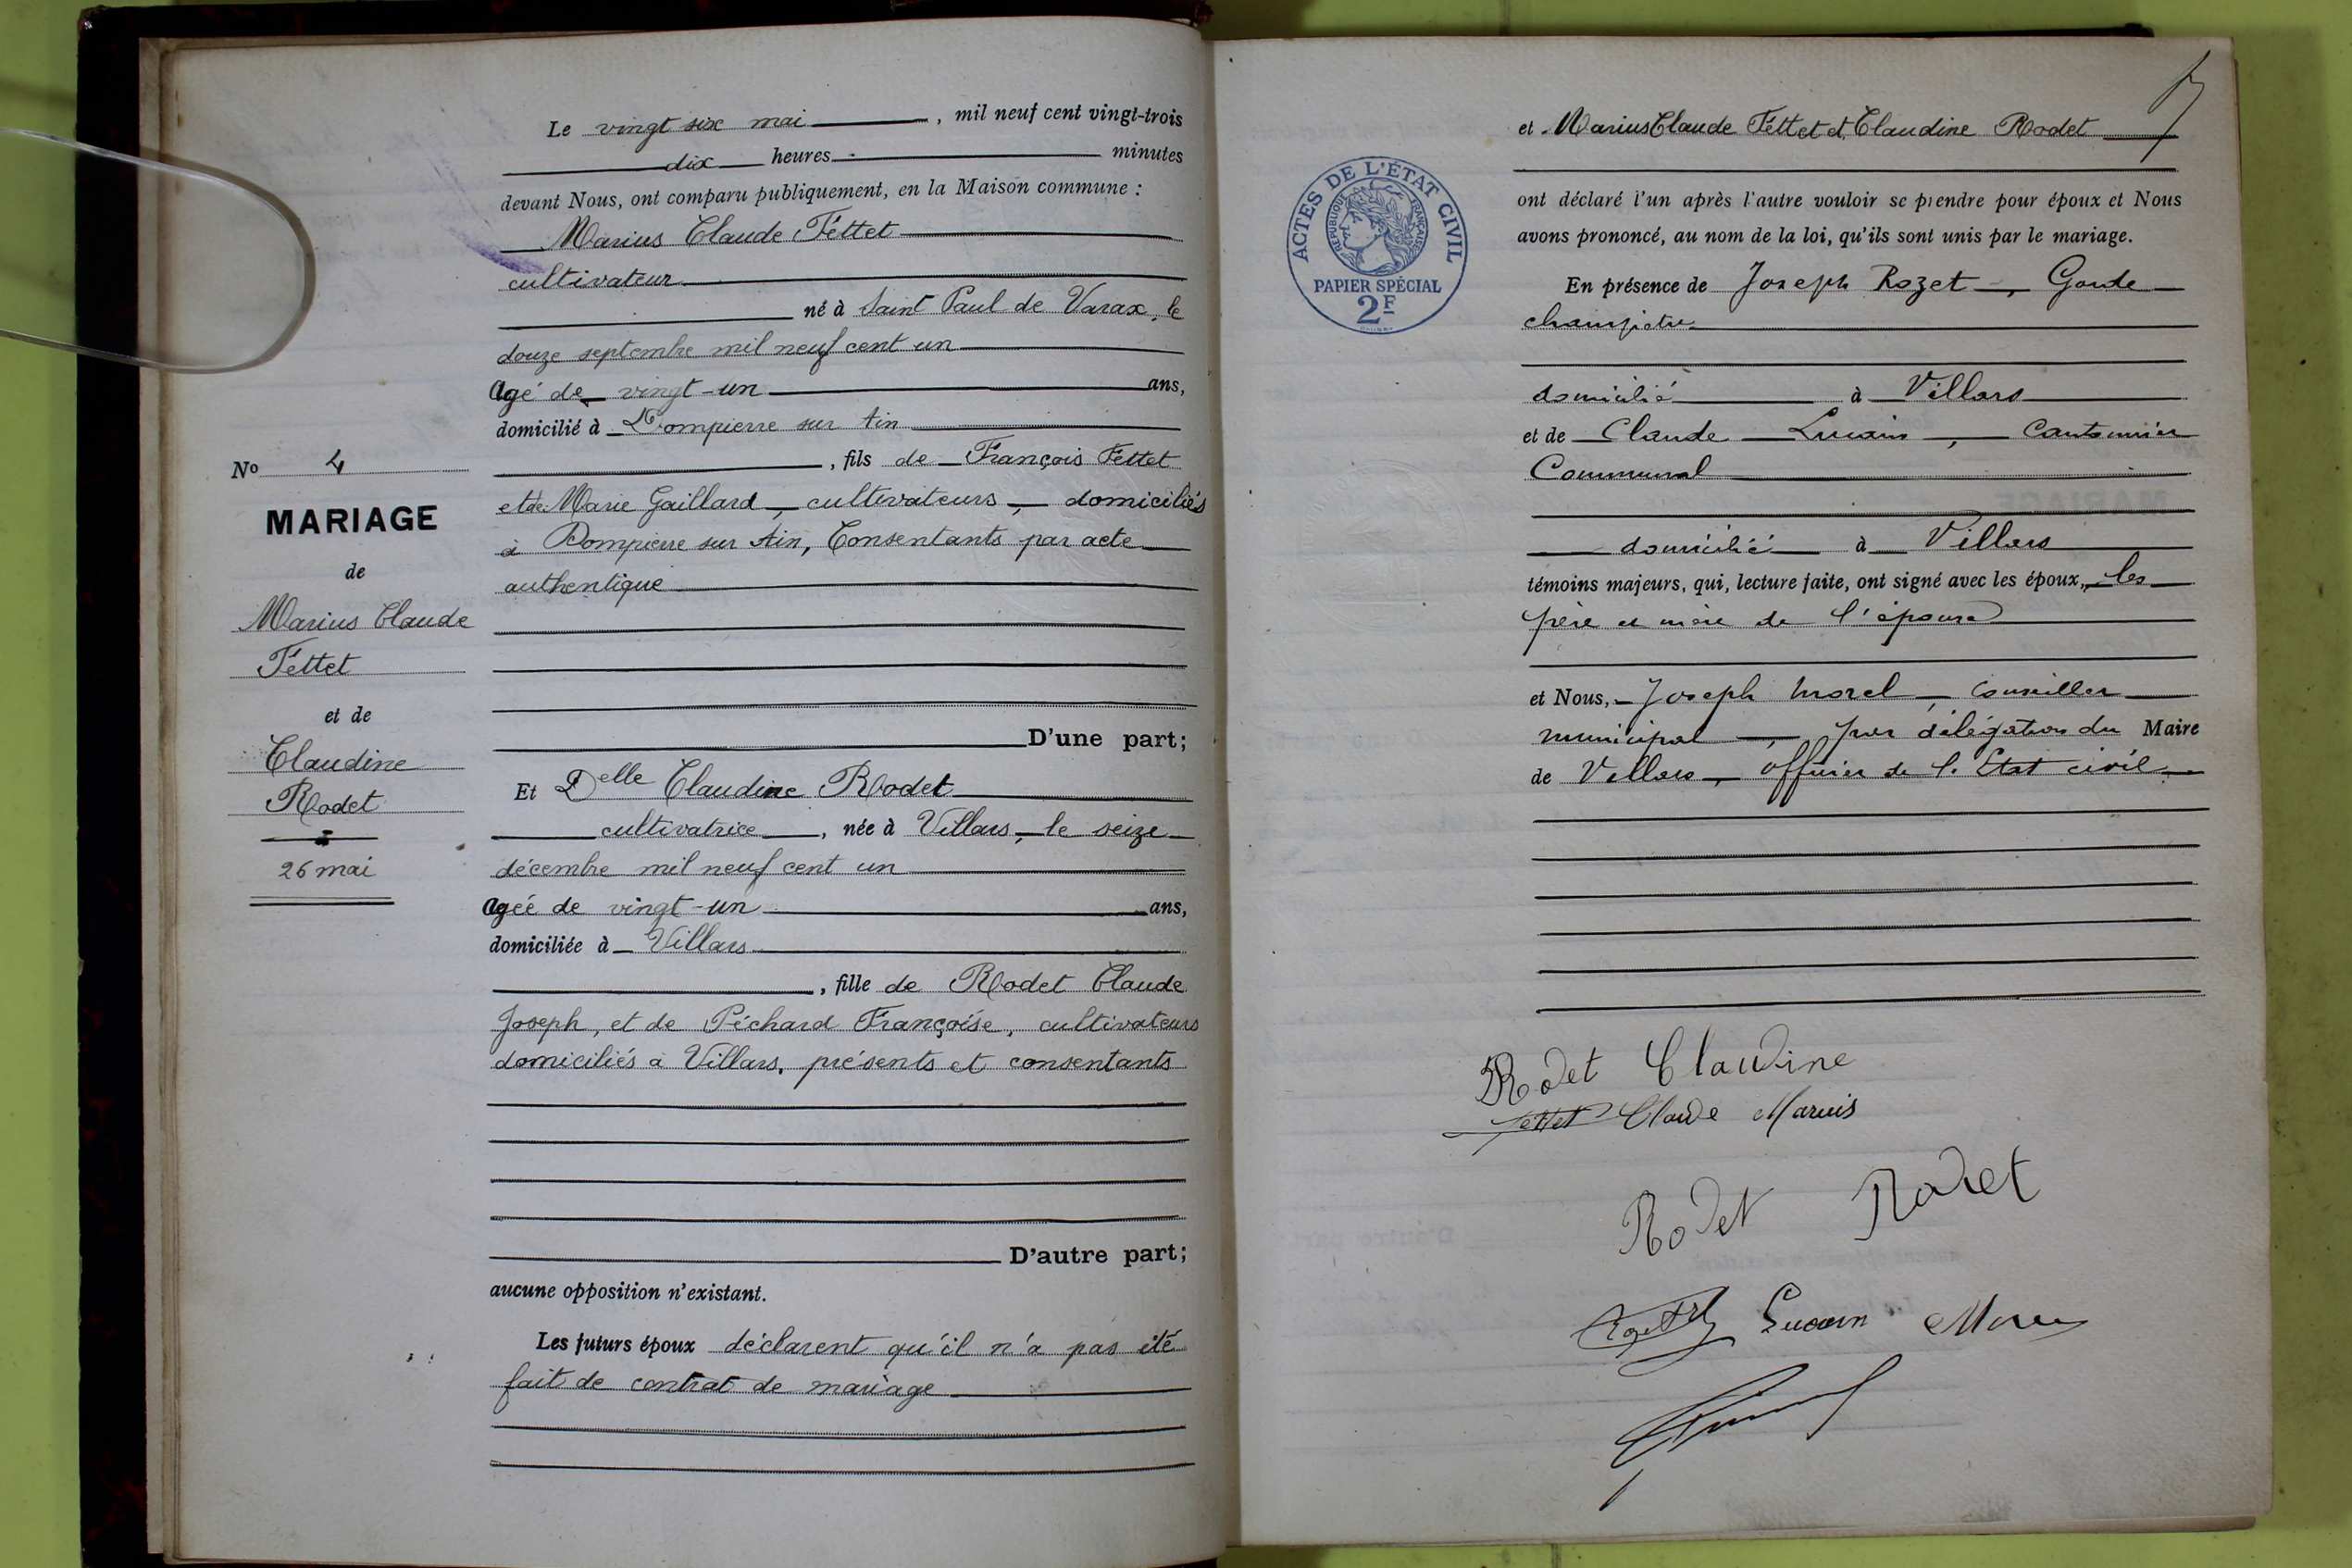 Le vingt six mai, mil neuf cent vingt-trois
dix heures minutes
devant Nous, ont comparu publiquement, en la Maison commune :
Marius Claude Féttet
cultivateur
né à Saint Paul de Varax, le
douze septembre mil neuf cent un
Agé de vingt-un ans,
domicilié à Dompierre sur Ain
No 4
, fils de François Fettet
MARIAGE
et de Marie Gaillard, cultivateurs, domiciliés
à Dompierre sur Ain, Consentants par acte
de
authentique
Marius Claude
Féttet
et de
D'une part;
Claudine
Et Delle Claudine Rodet
Rodet
cultivatrice, née à Villars, le seize
26 mai
décembre mil neuf cent un
Agée de vingt-un ans,
domiciliée à Villars
, fille de Rodet Claude
Joseph, et de Péchard Françoise, cultivateurs
domiciliés à Villars, présents et consentants
D'autre part;
aucune opposition n'existant.
Les futurs époux déclarent qu'il n'a pas été
fait de contrat de mariage
et Marius Claude Féttet et Claudine Rodet
ACTES DE L'ÉTAT CIVIL
RÉPUBLIQUE FRANÇAISE
PAPIER SPÉCIAL
2F
ont déclaré l'un après l'autre vouloir se prendre pour époux et Nous
avons prononcé, au nom de la loi, qu'ils sont unis par le mariage.
En présence de Joseph Rozet, Garde
champêtre
domicilié à Villars
et de Claude Lucain, Cantonnier
Communal
domicilié à Villars
témoins majeurs, qui, lecture faite, ont signé avec les époux, les
père et mère de l'épouse
et Nous, Joseph Morel, Conseiller
municipal, par délégation du Maire
de Villars, officier de l'Etat civil
Rodet Claudine
fettet Claude Marius
Rodet Rodet
Rozet Lucain Morel